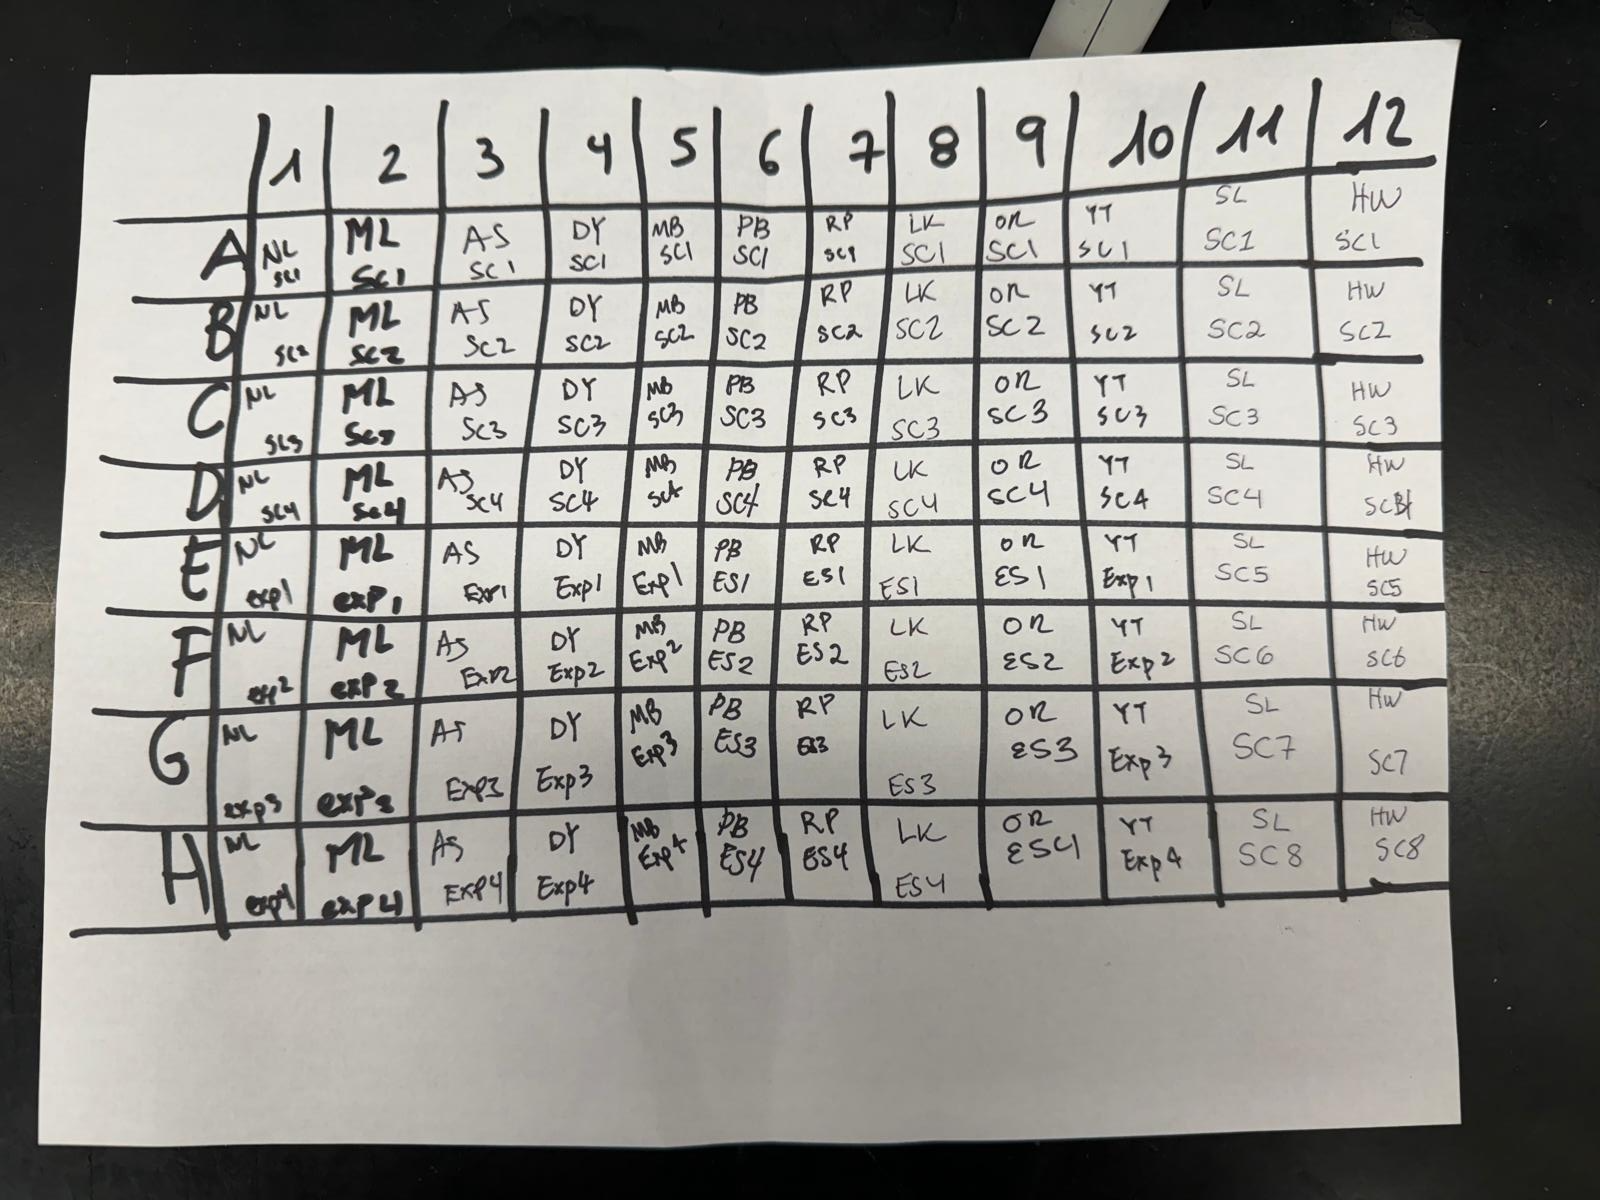 1 2 3 4 5 6 7 8 9 10 11 12
A NL SC1 ML SC1 AS SC1 DY SC1 MB SC1 PB SC1 RP SC1 LK SC1 OR SC1 YT SC1 SL SC1 HW SC1
B NL SC2 ML SC2 AS SC2 DY SC2 MB SC2 PB SC2 RP SC2 LK SC2 OR SC2 YT SC2 SL SC2 HW SC2
C NL SC3 ML SC3 AS SC3 DY SC3 MB SC3 PB SC3 RP SC3 LK SC3 OR SC3 YT SC3 SL SC3 HW SC3
D NL SC4 ML SC4 AS SC4 DY SC4 MB SC4 PB SC4 RP SC4 LK SC4 OR SC4 YT SC4 SL SC4 HW SC4
E NL exp1 ML exp1 AS Exp1 DY Exp1 MB Exp1 PB ES1 RP ES1 LK ES1 OR ES1 YT Exp1 SL SC5 HW SC5
F NL exp2 ML exp2 AS Exp2 DY Exp2 MB Exp2 PB ES2 RP ES2 LK ES2 OR ES2 YT Exp2 SL SC6 HW SC6
G NL exp3 ML exp3 AS Exp3 DY Exp3 MB Exp3 PB ES3 RP ES3 LK ES3 OR ES3 YT Exp3 SL SC7 HW SC7
H NL exp4 ML exp4 AS Exp4 DY Exp4 MB Exp4 PB ES4 RP ES4 LK ES4 OR ES4 YT Exp4 SL SC8 HW SC8